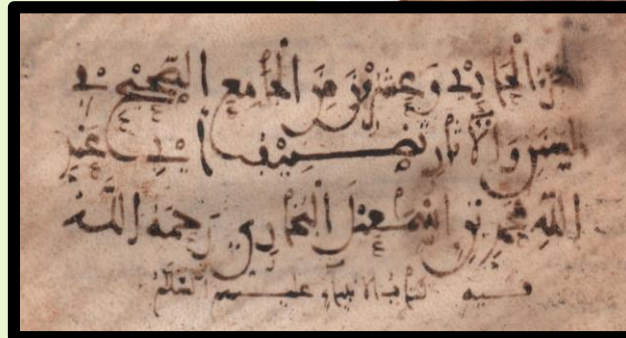 جزء الحادي وعشرين من الجامع الصحيح في
السنن والآثار تصنيف ابي عبد
الله محمد بن اسمعيل البخاري رحمة الله
فيه كتاب الانبياء عليهم السلام